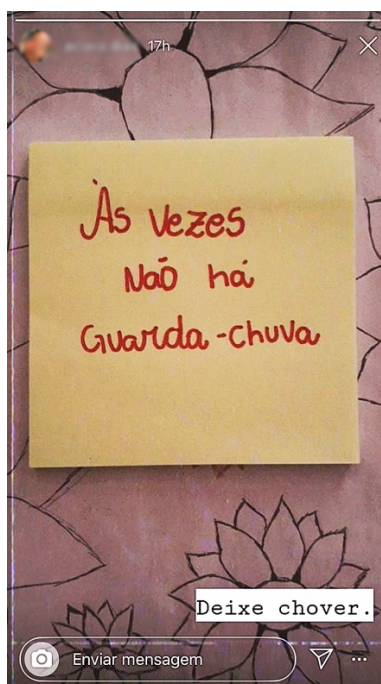 17h
Às vezes
Não há
Guarda-chuva
Deixe chover.
Enviar mensagem